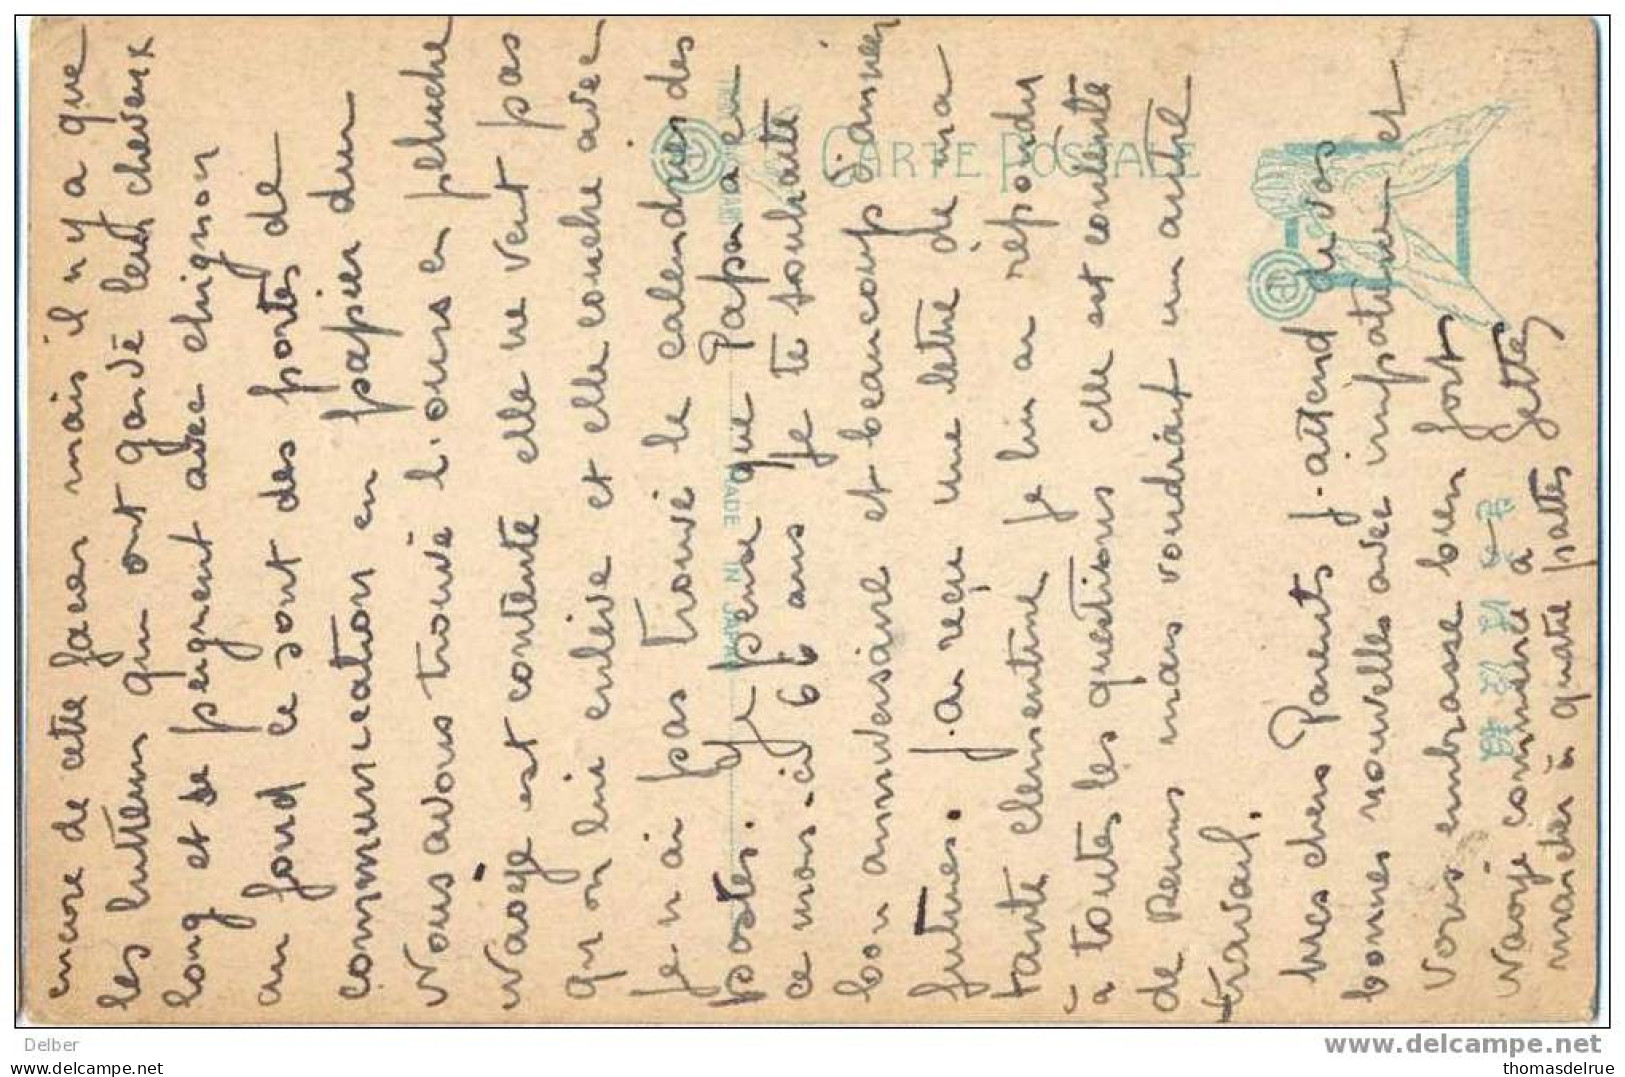 encore de cette facon mais il n'y a que
les lutteurs qui ont gardé leur cheveux
long et se peignent avec chignon
au fond ce sont des portes de
communication en papier dur
Nous avons trouvé l'ours en peluche
Naoye est contente elle ne veut pas
qu'on lui enlève et elle couche avec
je n'ai pas trouvé le calendrier des
postes. Je pense que Papa a eu
ce mois-ci 66 ans je te souhaite
bon anniversaire et beaucoup d'années
futures. j'ai reçu une lettre de ma
tante clementine je lui ai répondu
à toutes les questions elle est contente
de Remis mais voudrait un autre
travail.
mes chers Parents j'attend de vos
bonnes nouvelles avec impatience et
vous embrasse bien fort
Naoye commence à Gettes
marcher à quatre pattes
CARTE POSTALE
MADE IN JAPAN
Delber
www.delcampe.net
your name / company name
thomasdelrue